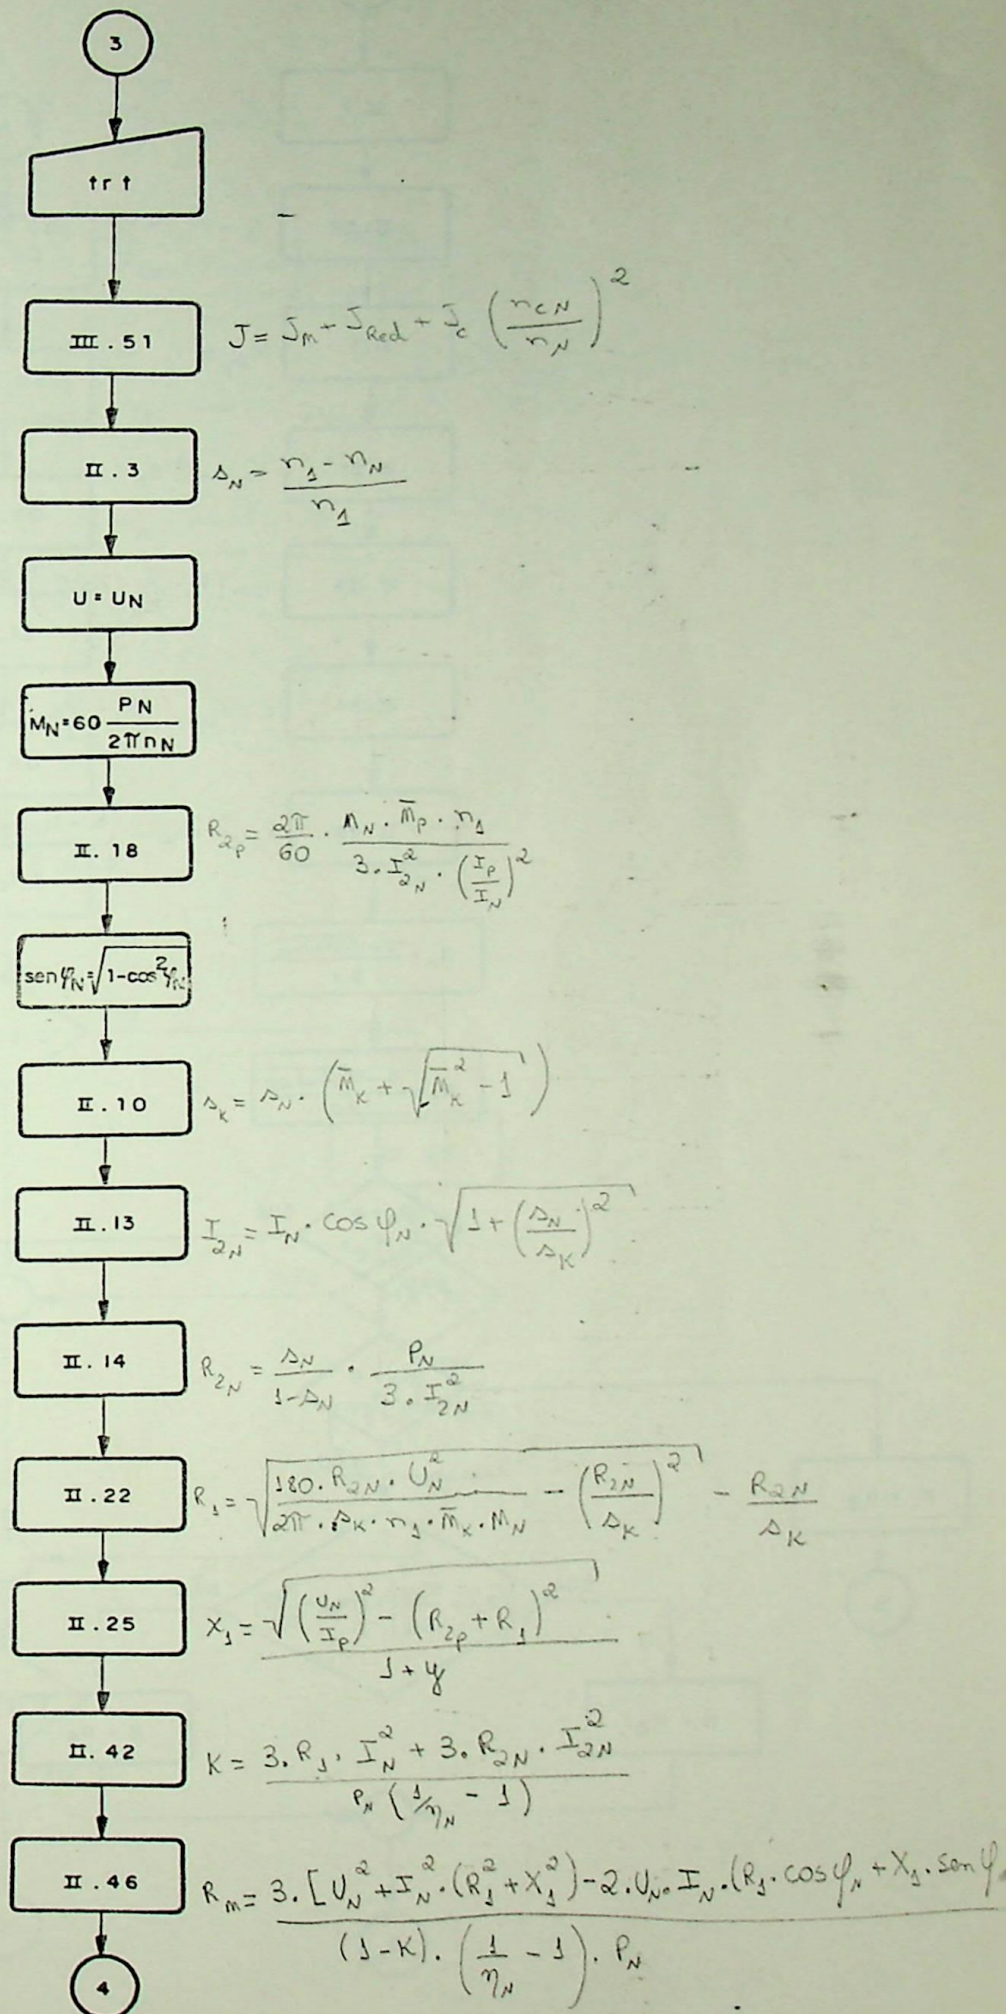 3
↑r↑
III.51 J = J_m + J_Red + J_c (n_cN / n_N)^2
II.3 s_N = (n_1 - n_N) / n_1
U = U_N
M_N = 60 P_N / 2πn_N
II.18 R_2p = 2π/60 · (M_N · m̄_p · n_1) / (3 · I_2N^2 · (I_p / I_N)^2)
sen φ_N = √(1-cos^2 φ_N)
II.10 s_K = s_N · (m̄_K + √(m̄_K^2 - 1))
II.13 I_2N = I_N · cos φ_N · √(1 + (s_N / s_K)^2)
II.14 R_2N = s_N / (1-s_N) · P_N / (3 · I_2N^2)
II.22 R_1 = √((180 · R_2N · U_N^2) / (2π · s_K · n_1 · m̄_K · M_N) - (R_2N / s_K)^2) - R_2N / s_K
II.25 X_1 = √((U_N / I_p)^2 - (R_2p + R_1)^2) / (1 + y)
II.42 K = (3 · R_1 · I_N^2 + 3 · R_2N · I_2N^2) / (P_N (1/η_N - 1))
II.46 R_m = 3 · [U_N^2 + I_N^2 · (R_1^2 + X_1^2) - 2 · U_N · I_N · (R_1 · cos φ_N + X_1 · sen φ / (1-K) · (1/η_N - 1) · P_N
4